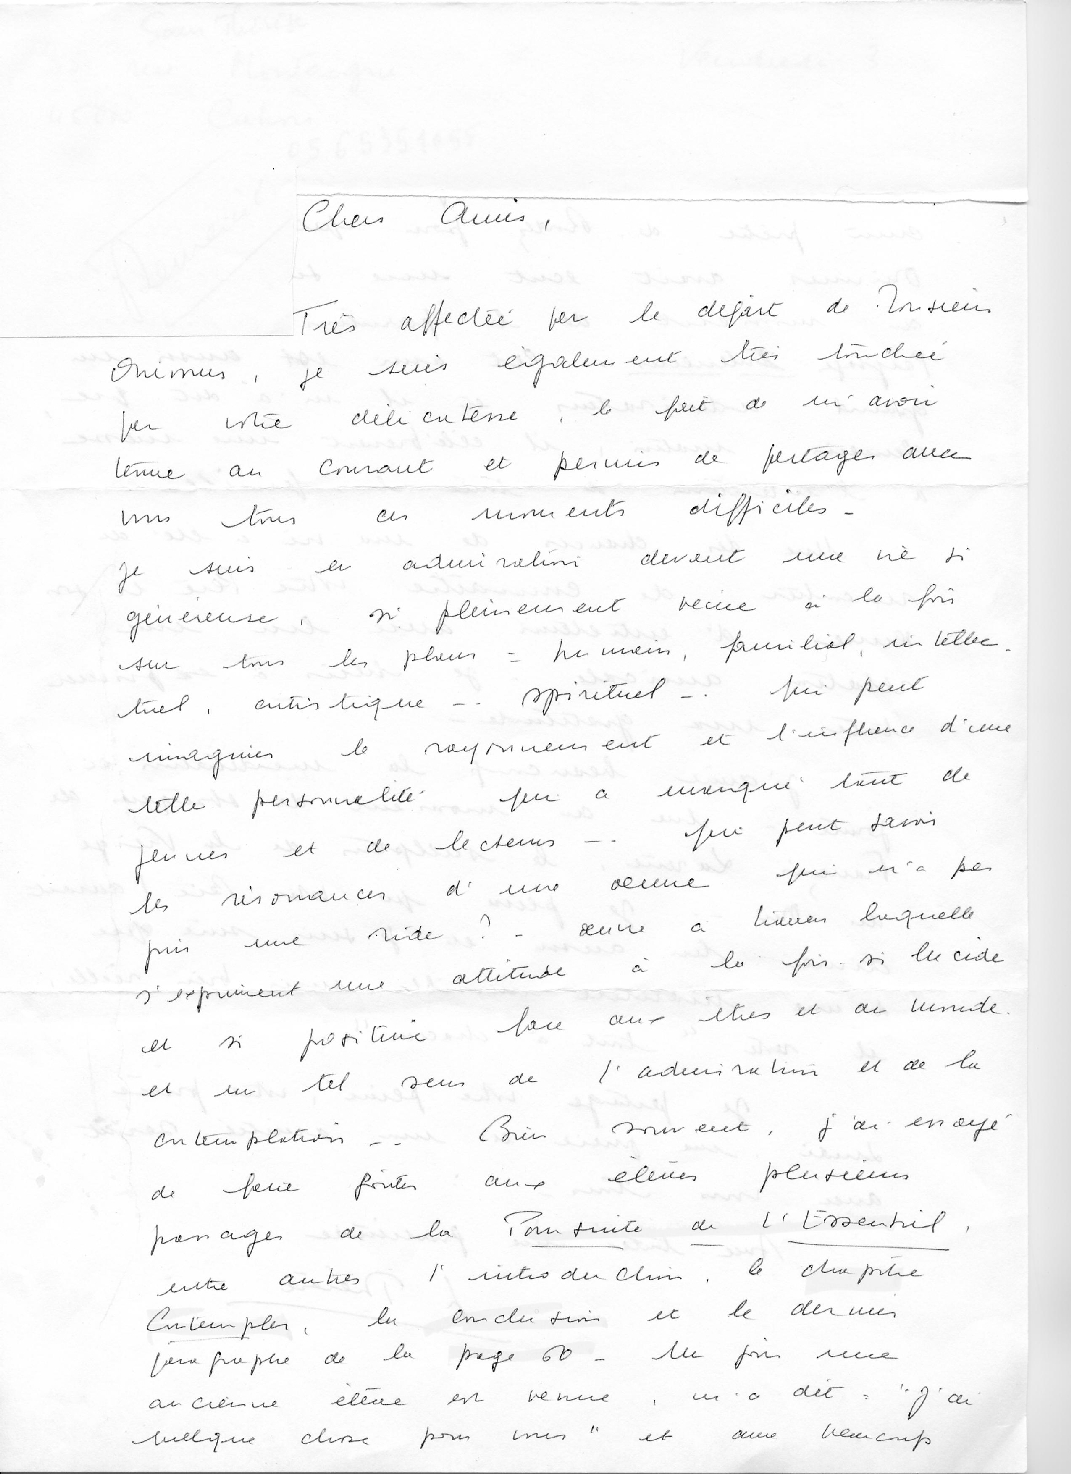 Chers Amis,
Très affectée par le départ de Monsieur
Onimus, je suis également très touchée
par votre délicatesse, le fait de m'avoir
tenue au courant et permis de partager avec
vous tous ces moments difficiles -
Je suis en admiration devant une vie si
généreuse, si pleinement vécue à la fois
sur tous les plans = humain, familial, intellec-
tuel, artistique -. spirituel -. Qui peut
imaginer le rayonnement et l'influence d'une
telle personnalité qui a marqué tant de
jeunes et de lecteurs -. Qui peut savoir
les résonances d'une oeuvre qui n'a pas
pris une ride ? - oeuvre à travers laquelle
s'expriment une attitude à la fois si lucide
et si positive face aux êtres et au monde.
et un tel sens de l'admiration et de la
contemplation -. Bien souvent, j'ai essayé
de faire goûter aux élèves plusieurs
passages de la Poursuite de l'Essentiel,
entre autres l'introduction, le chapitre
Contempler, la conclusion et le dernier
paragraphe de la page 60 - Un jour une
ancienne élève est venue, m'a dit : "J'ai
quelque chose pour vous" et avec beaucoup